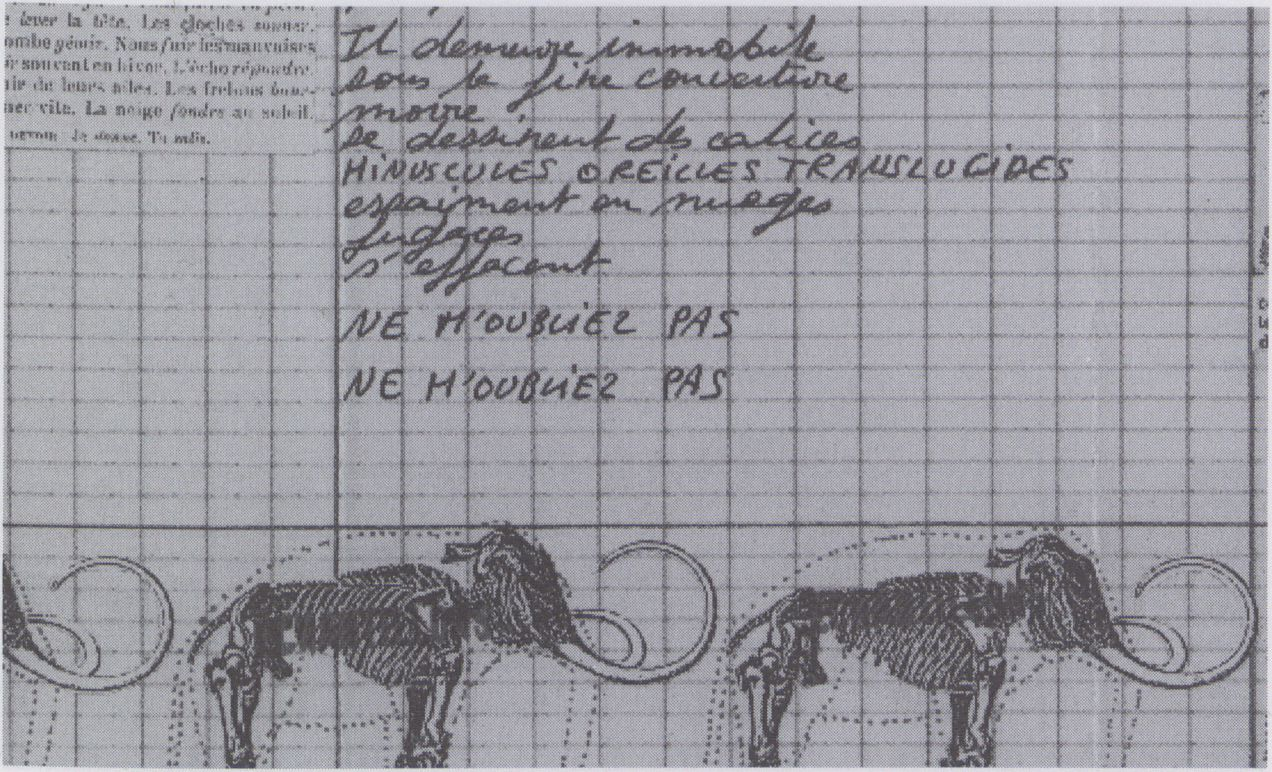 lever la tête. Les cloches sonner.
gémir. Nous fuir les mauvaises
souvent en hiver. L'écho répondre.
de leurs ailes. Les frelons
vite. La neige fondre au soleil.
Je donne. Tu
Il demeure immobile
sous la fine couverture
moire
se dessinent des calices
MINUSCULES OREILLES TRANSLUCIDES
essaiment en nuages
fugaces
s'effacent
NE M'OUBLIEZ PAS
NE M'OUBLIEZ PAS